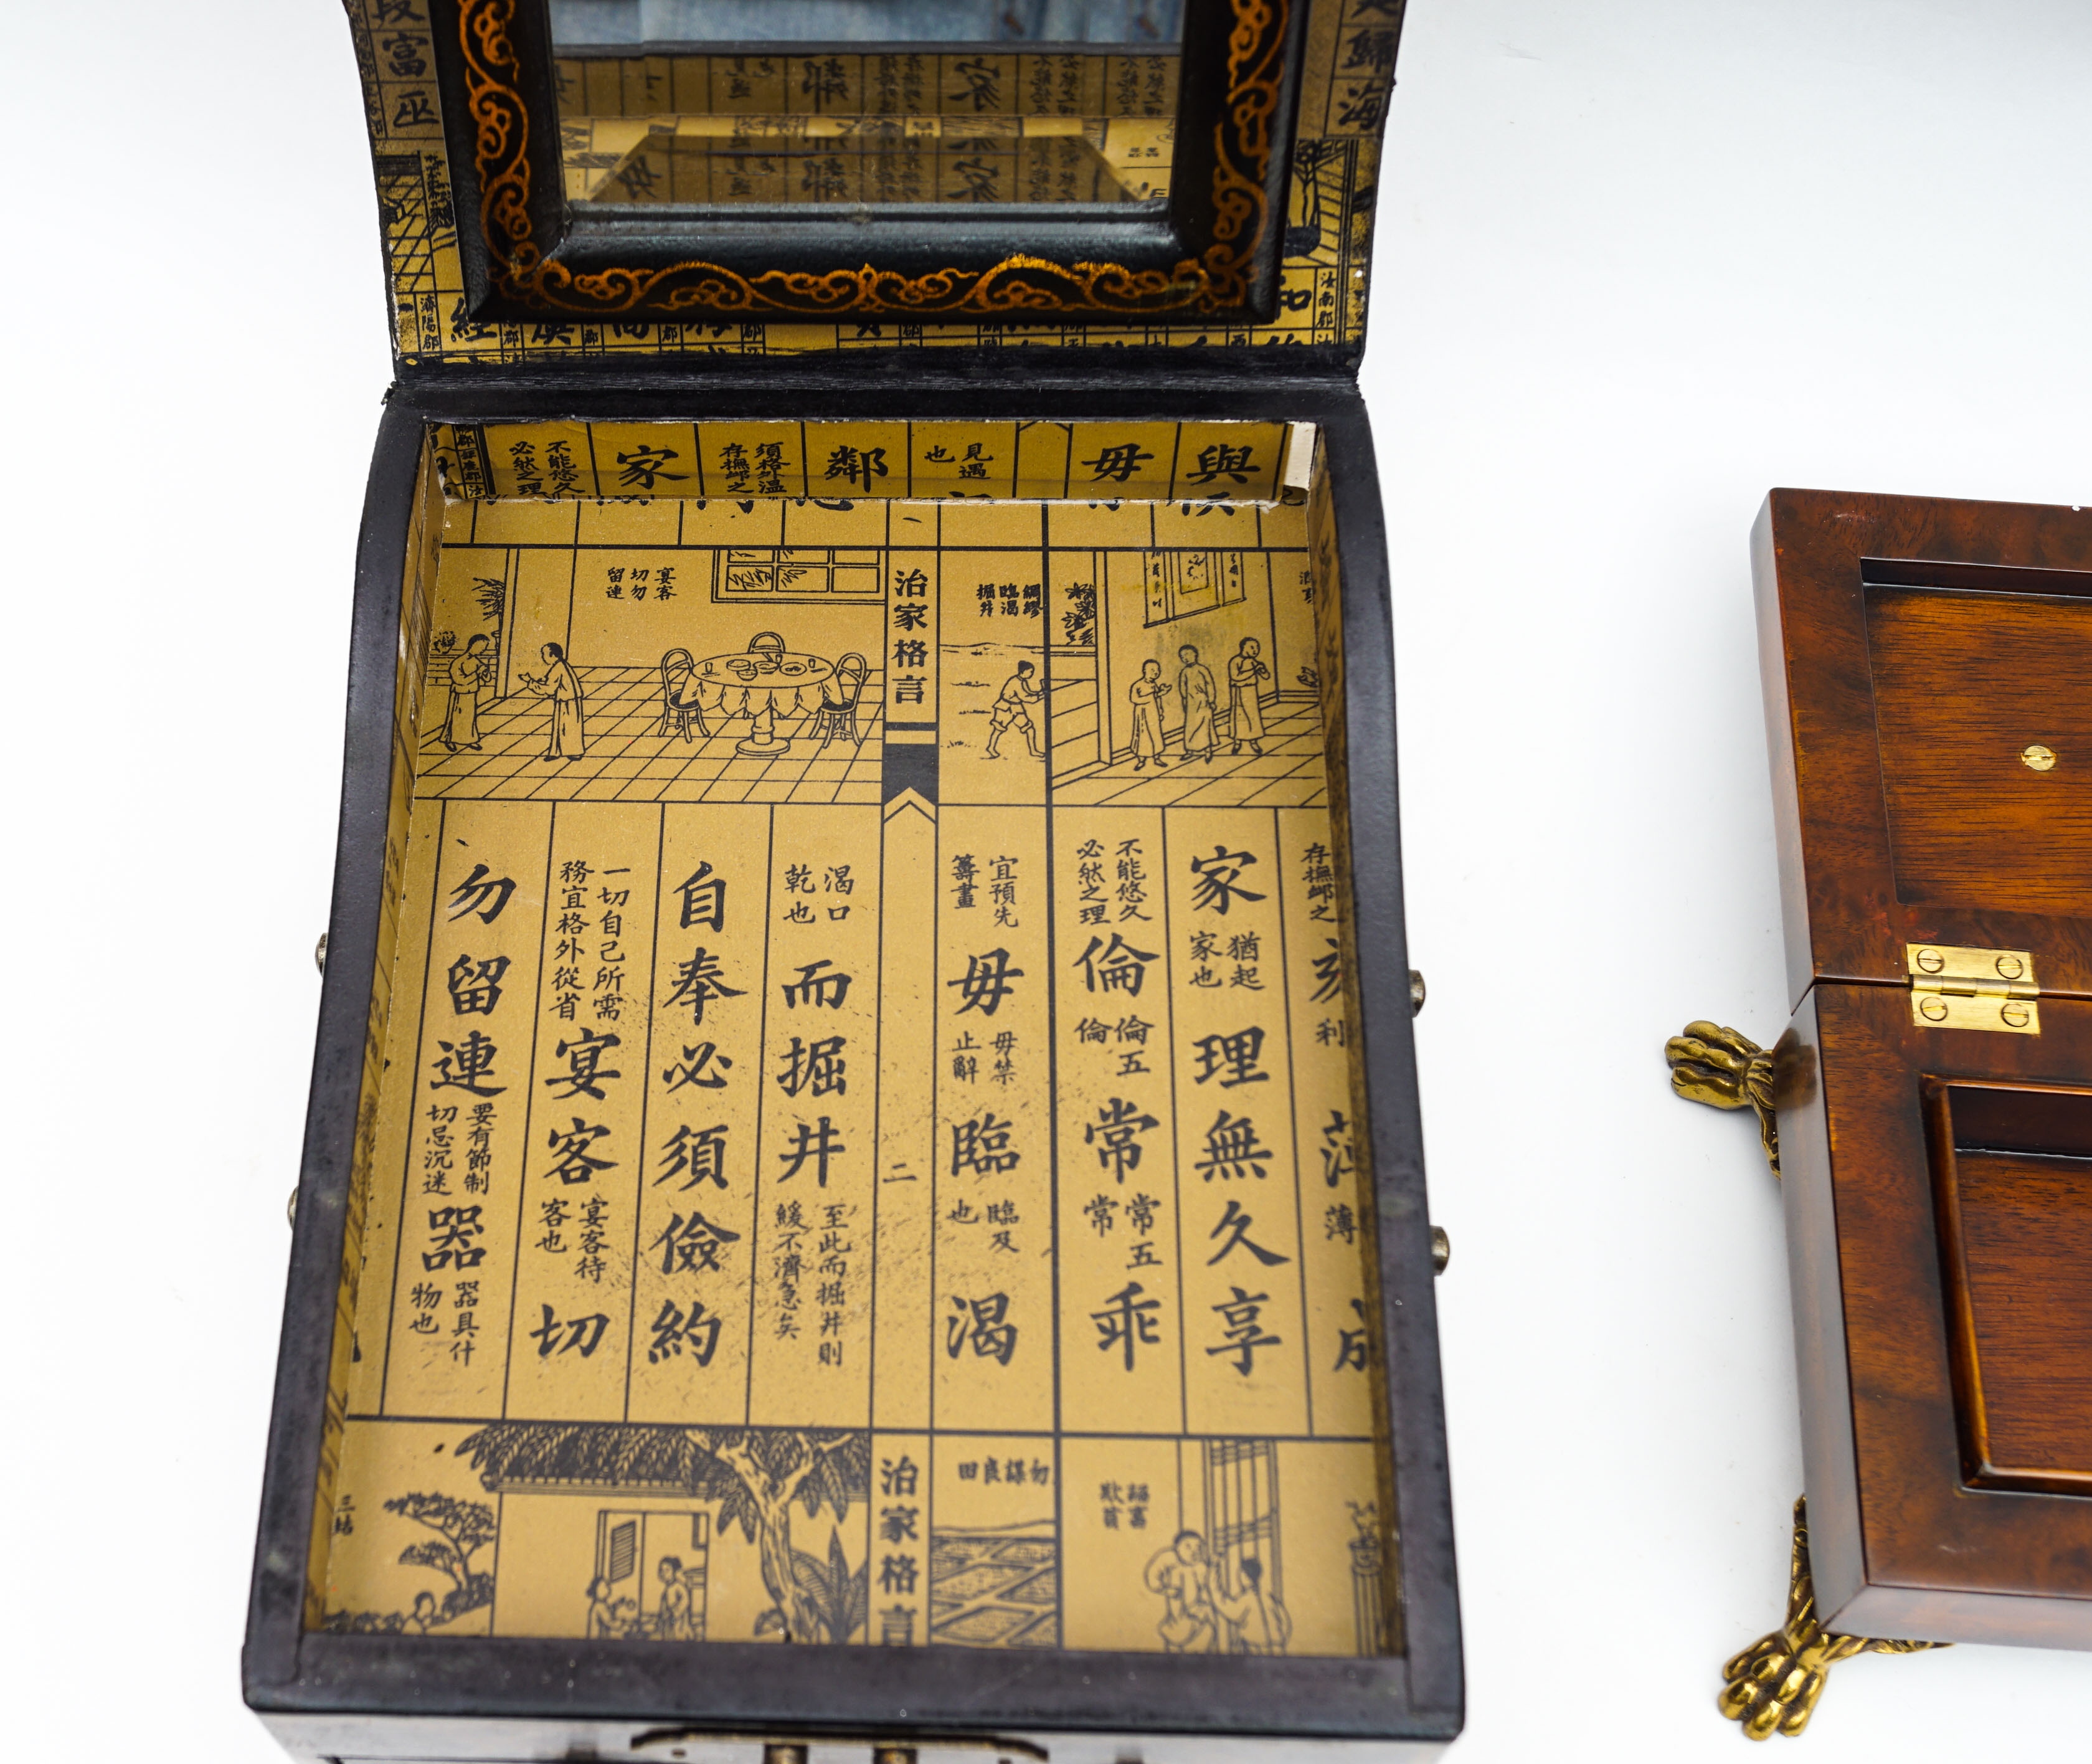 富
巫
歸
海
濟陽郡
汝南郡
與
毋
見遇
也
鄰
須格外溫
存撫卹之
家
不能悠久
必然之理
綢繆
臨渴
掘井
治家格言
宴客
切勿
留連
存撫卹之
利
薄
成
家
猶起
家也
理無久享
不能悠久
必然之理
倫
倫五
倫
常
常五
常
乖
宜預先
籌畫
毋
毋禁
止辭
臨
臨及
也
渴
二
渴口
乾也
而掘井
至此而掘井則
緩不濟急矣
自奉必須儉約
一切自己所需
務宜格外從省
宴客
宴客待
客也
切
勿留連
要有節制
切忌沉迷
器
器具什
物也
勿謀良田
治家格言